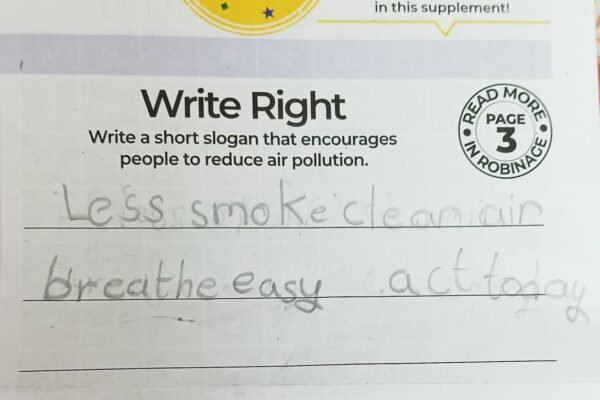 in this supplement!
Write Right
Write a short slogan that encourages
people to reduce air pollution.
READ MORE
PAGE
3
IN ROBINAGE
Less smoke clean air
breathe easy act today